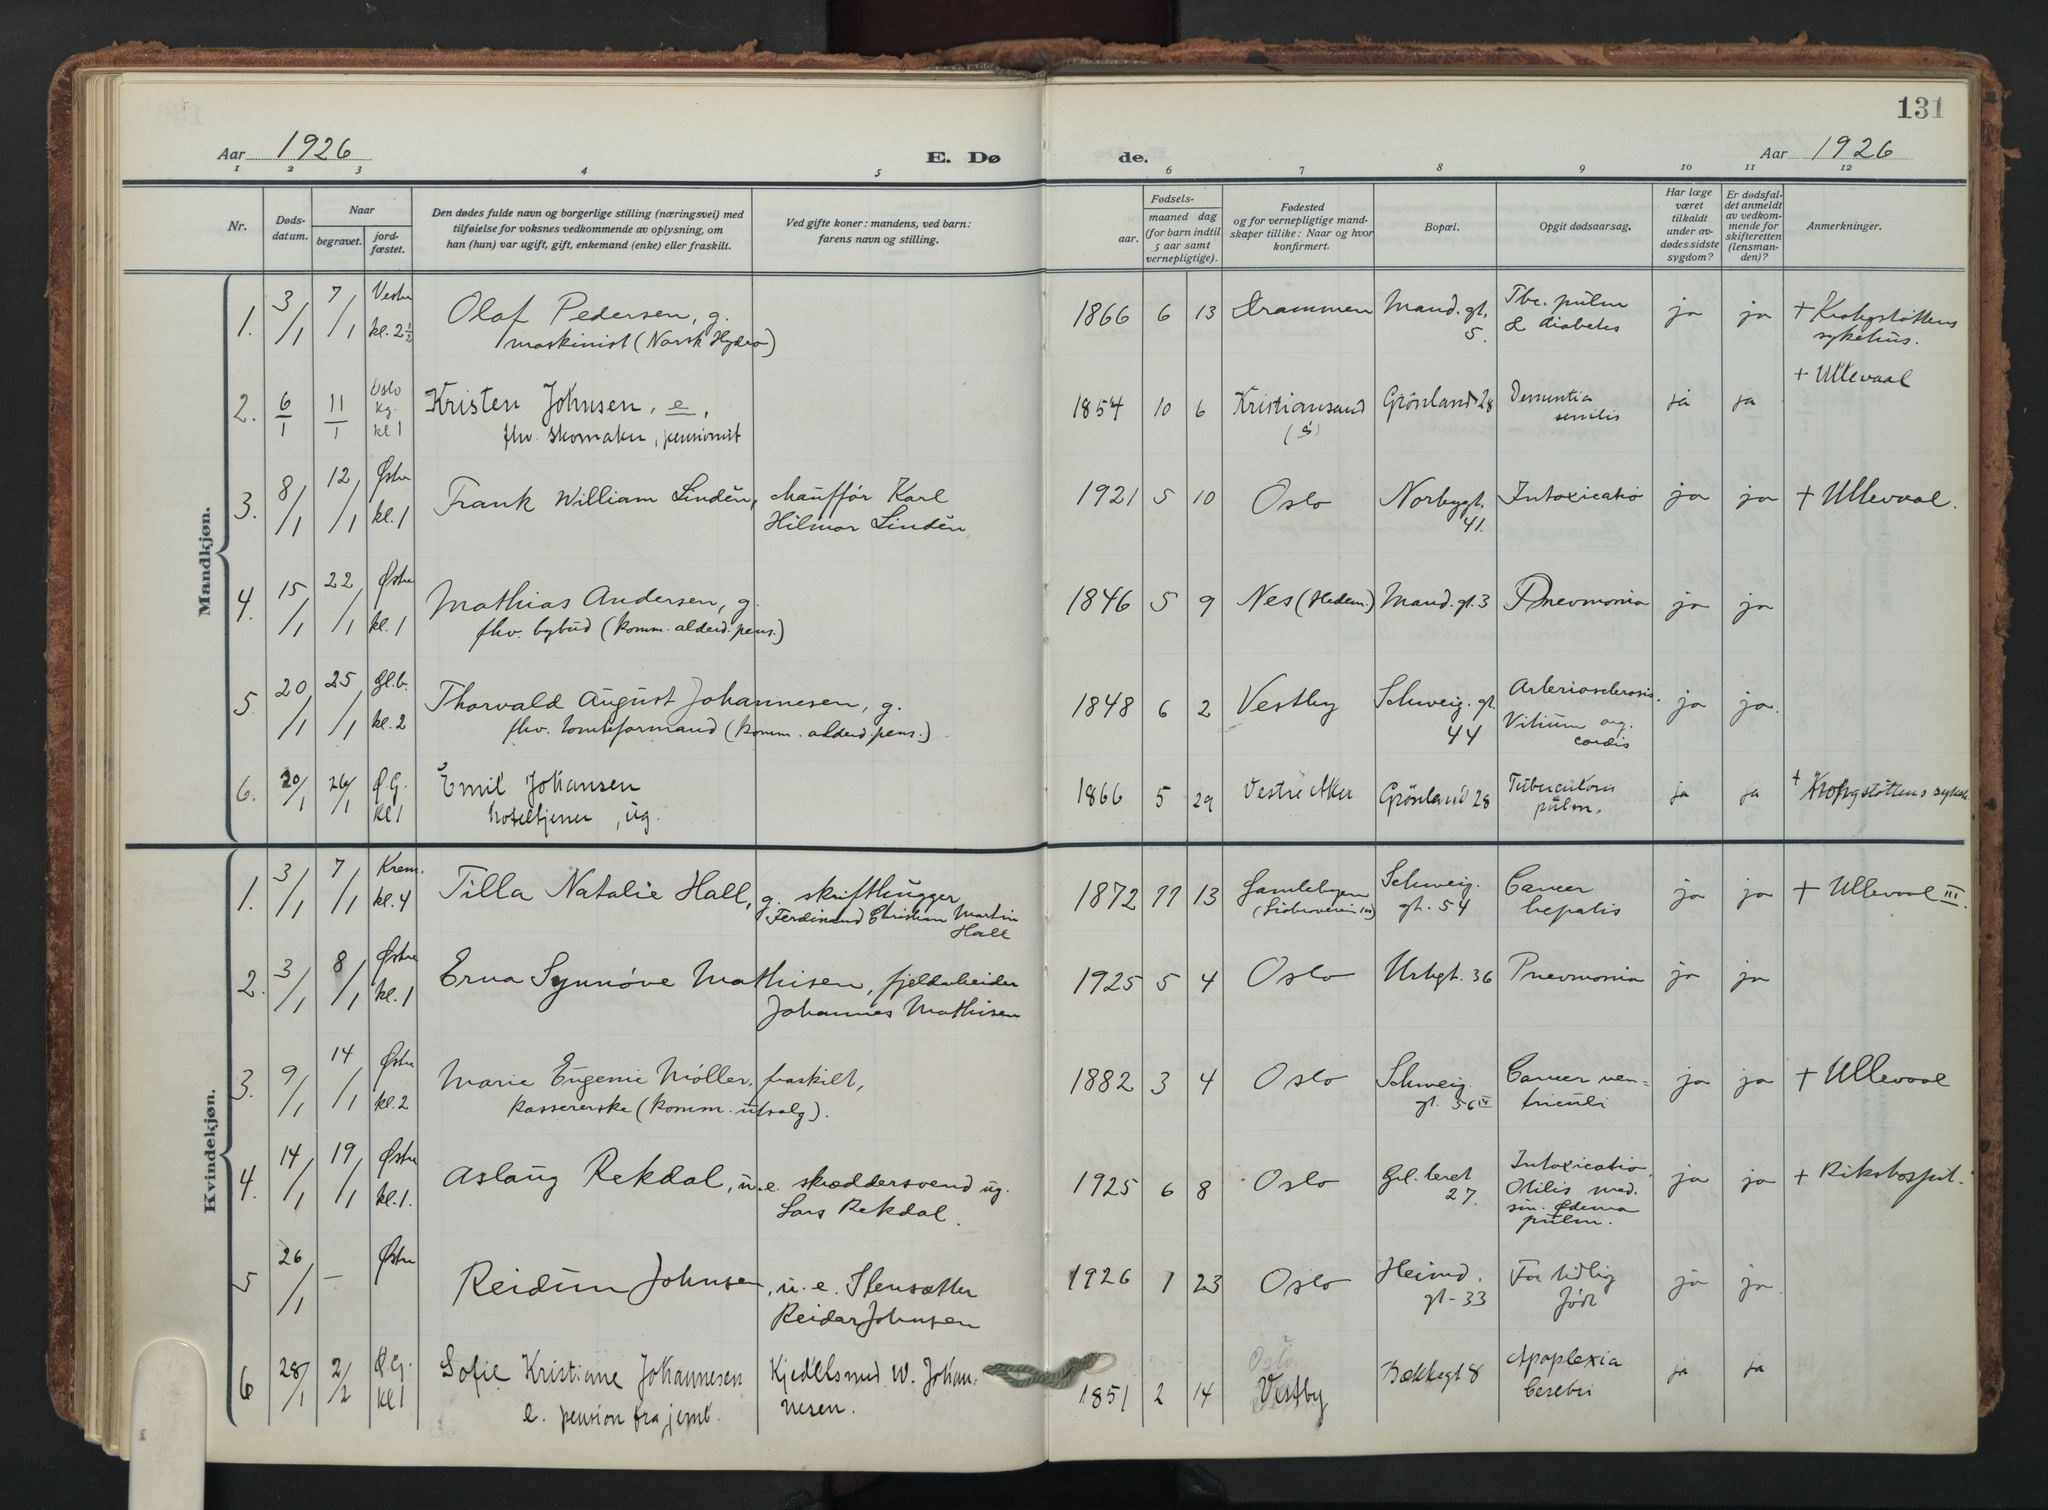 131
Aar 1926
E. Dø
de.
Aar 1926
1 2 3 4 5 6 7 8 9 10 11 12
Nr.
Døds-
datum.
Naar
begravet.
jord-
fæstet.
Den dødes fulde navn og borgerlige stilling (næringsvei) med
tilføielse for voksnes vedkommende av oplysning, om
han (hun) var ugift, gift, enkemand (enke) eller fraskilt.
Ved gifte koner: mandens, ved barn:
farens navn og stilling.
Fødsels-
aar.
maaned dag
(for barn indtil
5 aar samt
vernepligtige).
Fødested
og for vernepligtige mand-
skaper tillike: Naar og hvor
konfirmert.
Bopæl.
Opgit dødsaarsag.
Har læge
været
tilkaldt
under av-
dødes sidste
sygdom?
Er dødsfal-
det anmeldt
av vedkom-
mende for
skifteretten
(lensman-
den)?
Anmerkninger.
Mandkjøn.
1. 3/1 7/1 Vestre kl. 2½ Olaf Pedersen, g. 1866 6 13 Drammen Mand. gt. 5. Tbc. pulm & diabetes ja ja + Krohgstøttens
maskinist (Norsk Hydro) sykehus.
2. 6/1 11/1 Oslo Kg. kl 1 Kristen Johnsen, e, 1854 10 6 Kristiansand Grønland 28 Dementia senilis ja ja + Ullevaal
fhv. skomaker, pensionist (S)
3. 8/1 12/1 Østre kl. 1 Frank William Lindén, chauffør Karl 1921 5 10 Oslo Norbygt. 41. Intoxicatio ja ja + Ullevaal.
Hilmar Lindén
4. 15/1 22/1 Østre kl. 1 Mathias Andersen, g. 1846 5 9 Nes (Hedem.) Mand. gt. 3 Pnevmonia ja ja
fhv. bybud (komm. alderd. pens.)
5. 20/1 25/1 Gl.b. kl. 2 Thorvald August Johannesen, g. 1848 6 2 Vestby Schweig. gt. 44 Arteriosclerosis. ja ja.
fhv. tomteformand (komm. alderd. pens.) Vitium org. cordis
6. 20/1 26/1 Ø.G. kl 1 Emil Johansen 1866 5 29 Vestre Aker Grønland 28 Tuberculosis pulm. ja ja + Krohgstøttens sykeh.
hoteltjener, ug.
Kvindekjøn.
1. 3/1 7/1 Krem. kl. 4 Tilla Natalie Hall, g. skrifthugger 1872 11 13 Gamlebyen Schweig. gt. 54 Cancer hepatis ja ja + Ullevaal III.
Ferdinand Christian Martin
Hall
2. 3/1 8/1 Østre kl. 1 Erna Synnøve Mathisen, fjeldarbeider 1925 5 4 Oslo Urtegt. 36 Pnevmonia ja ja
Johannes Mathisen
3. 9/1 14/1 Østre kl. 2 Marie Eugenie Møller, fraskilt, 1882 3 4 Oslo Schweig. gt. 56 IV Cancer ven- ja ja + Ullevaal
kassererske (komm. utsalg). triculi
4. 14/1 19/1 Østre kl. 1. Aslaug Rekdal, u. e. skræddersvend ug. 1925 6 8 Oslo Grl. leret 27. Intoxicatio, ja ja + Rikshospit.
Lars Rekdal. Otitis med.
sin. Ødema
pulm.
5 26/1 — Østre Reidun Johnsen, u. e. Stensætter 1926 1 23 Oslo Heimd. gt. 33 For tidlig født ja ja.
Reidar Johnsen
6 28/1 2/2 Ø.G. kl 1 Sofie Kristiane Johannesen Kjedelsmed W. Johan- 1851 2 14 Oslo Vestby Bækkegt 8 Apoplexia cerebri ja ja
e. pension fra jernb. nesen.